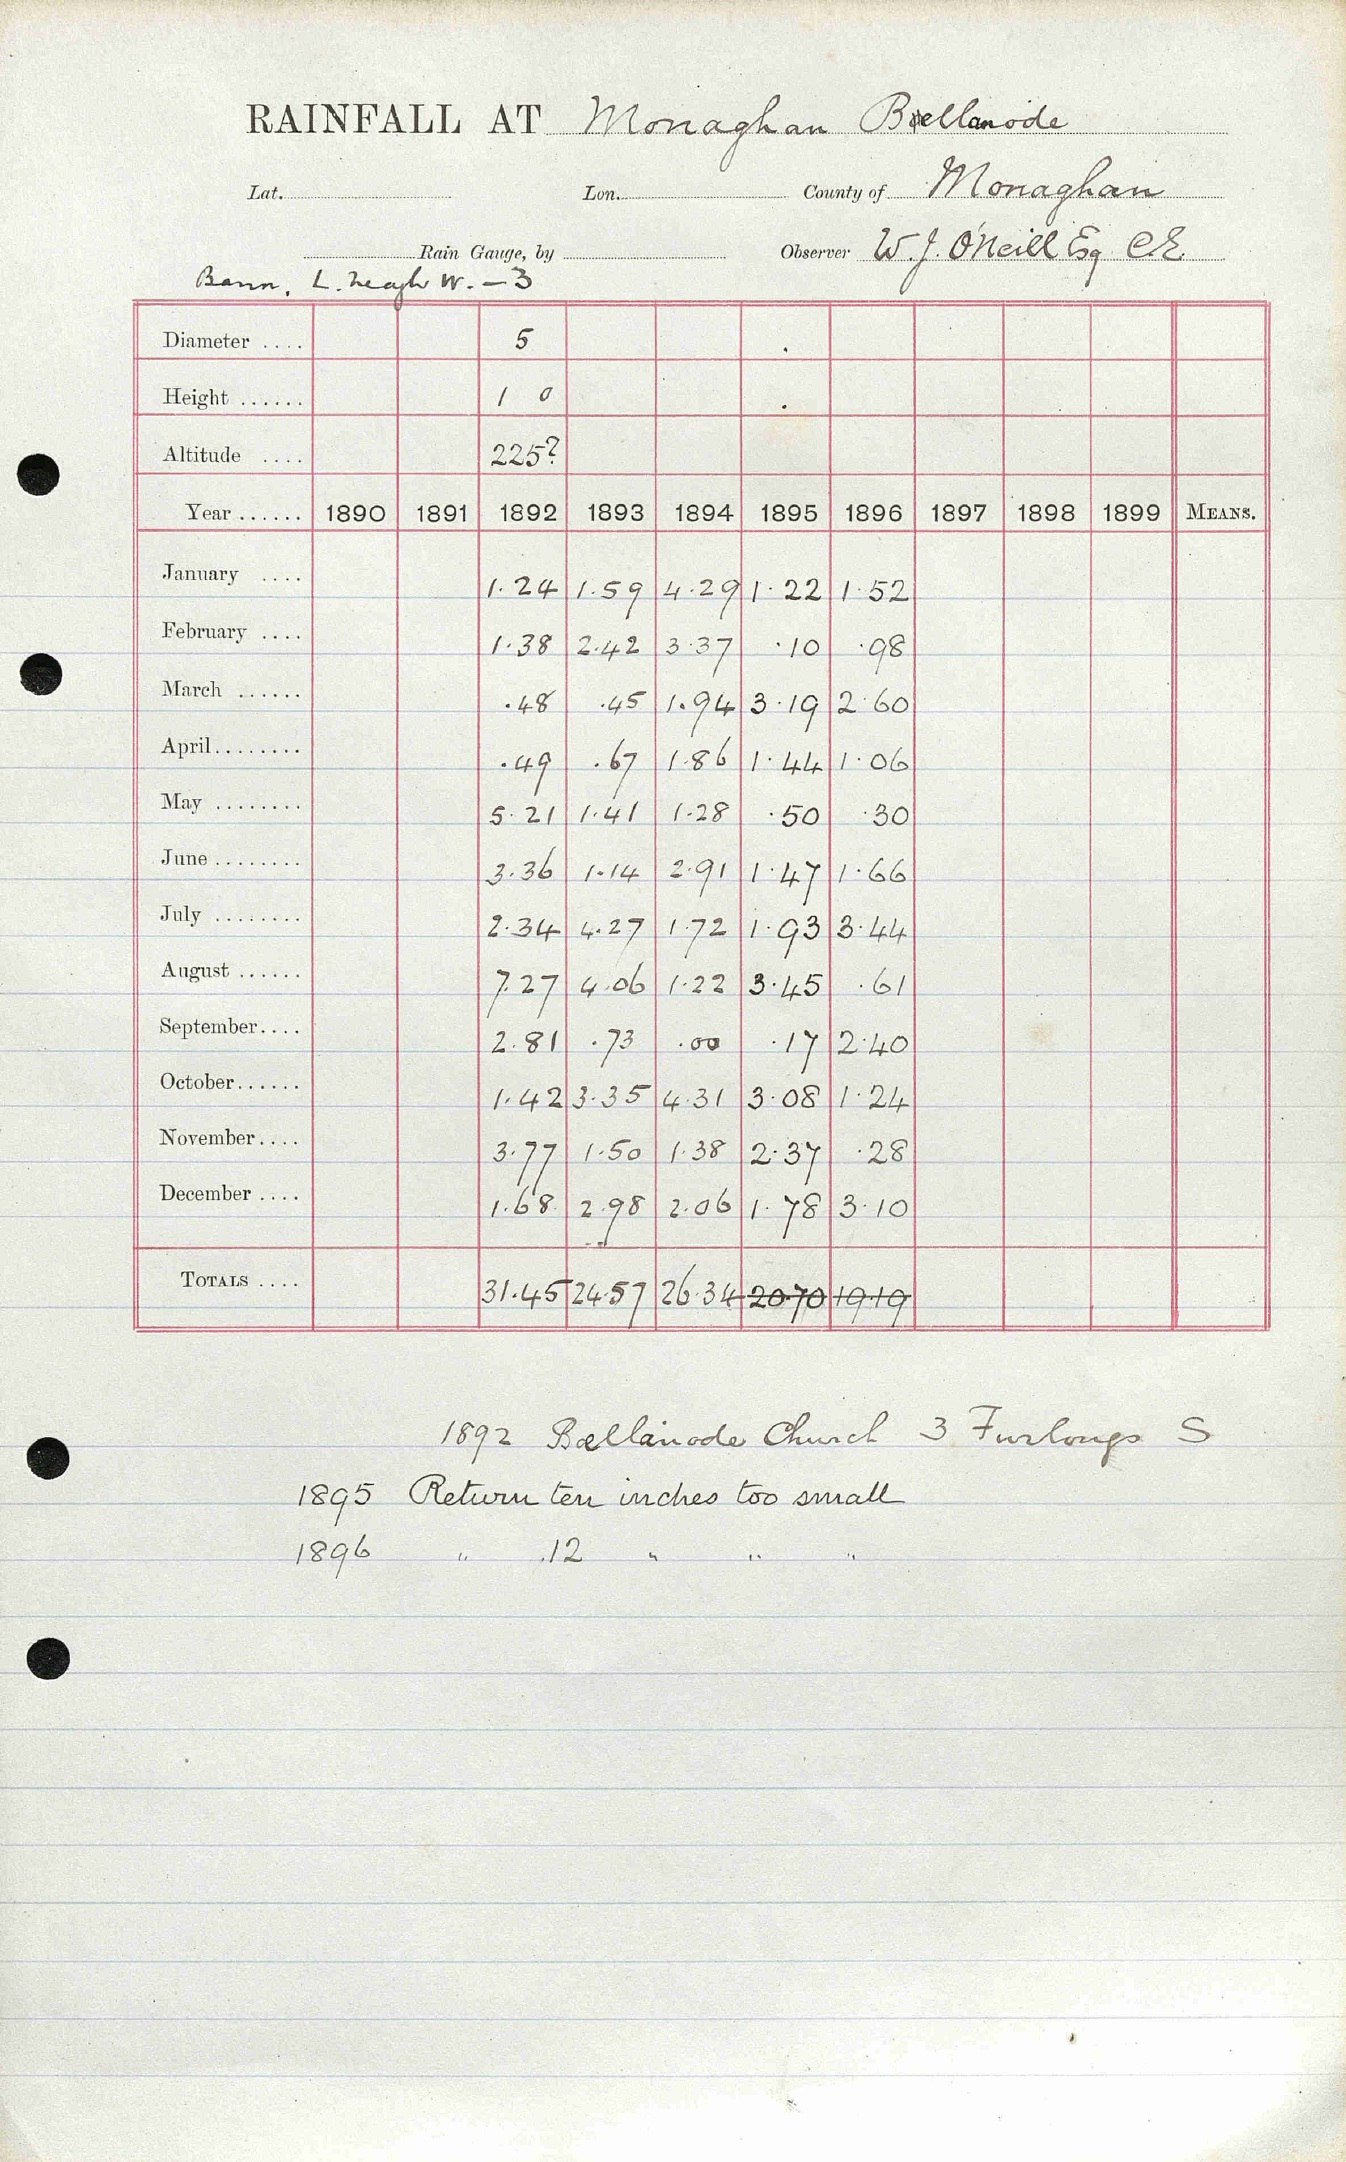 RAINFALL AT Monaghan Bellanode
Lat. Lon. County of Monaghan
Rain Gauge, by Observer W. J. O'Neill Esq CE
Bann. L. Neagh W. – 3
Diameter .... 5
Height ...... 1 0
Altitude .... 225?
Year ...... 1890 1891 1892 1893 1894 1895 1896 1897 1898 1899 MEANS.
January .... 1.24 1.59 4.29 1.22 1.52
February .... 1.38 2.42 3.37 .10 .98
March ...... .48 .45 1.94 3.19 2.60
April........ .49 .67 1.86 1.44 1.06
May ........ 5.21 1.41 1.28 .50 .30
June ........ 3.36 1.14 2.91 1.47 1.66
July ........ 2.34 4.27 1.72 1.93 3.44
August ...... 7.27 4.06 1.22 3.45 .61
September.... 2.81 .73 .00 .17 2.40
October...... 1.42 3.35 4.31 3.08 1.24
November.... 3.77 1.50 1.38 2.37 .28
December .... 1.68 2.98 2.06 1.78 3.10
TOTALS .... 31.45 24.57 26.34 20.70 19.19
1892 Bellanode Church 3 Furlongs S
1895 Return ten inches too small
1896 " 12 " " "